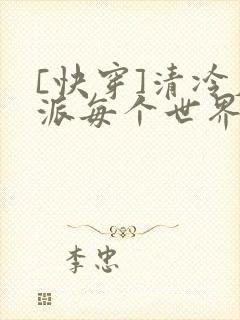 [快穿]清冷
派每个世界
李忠